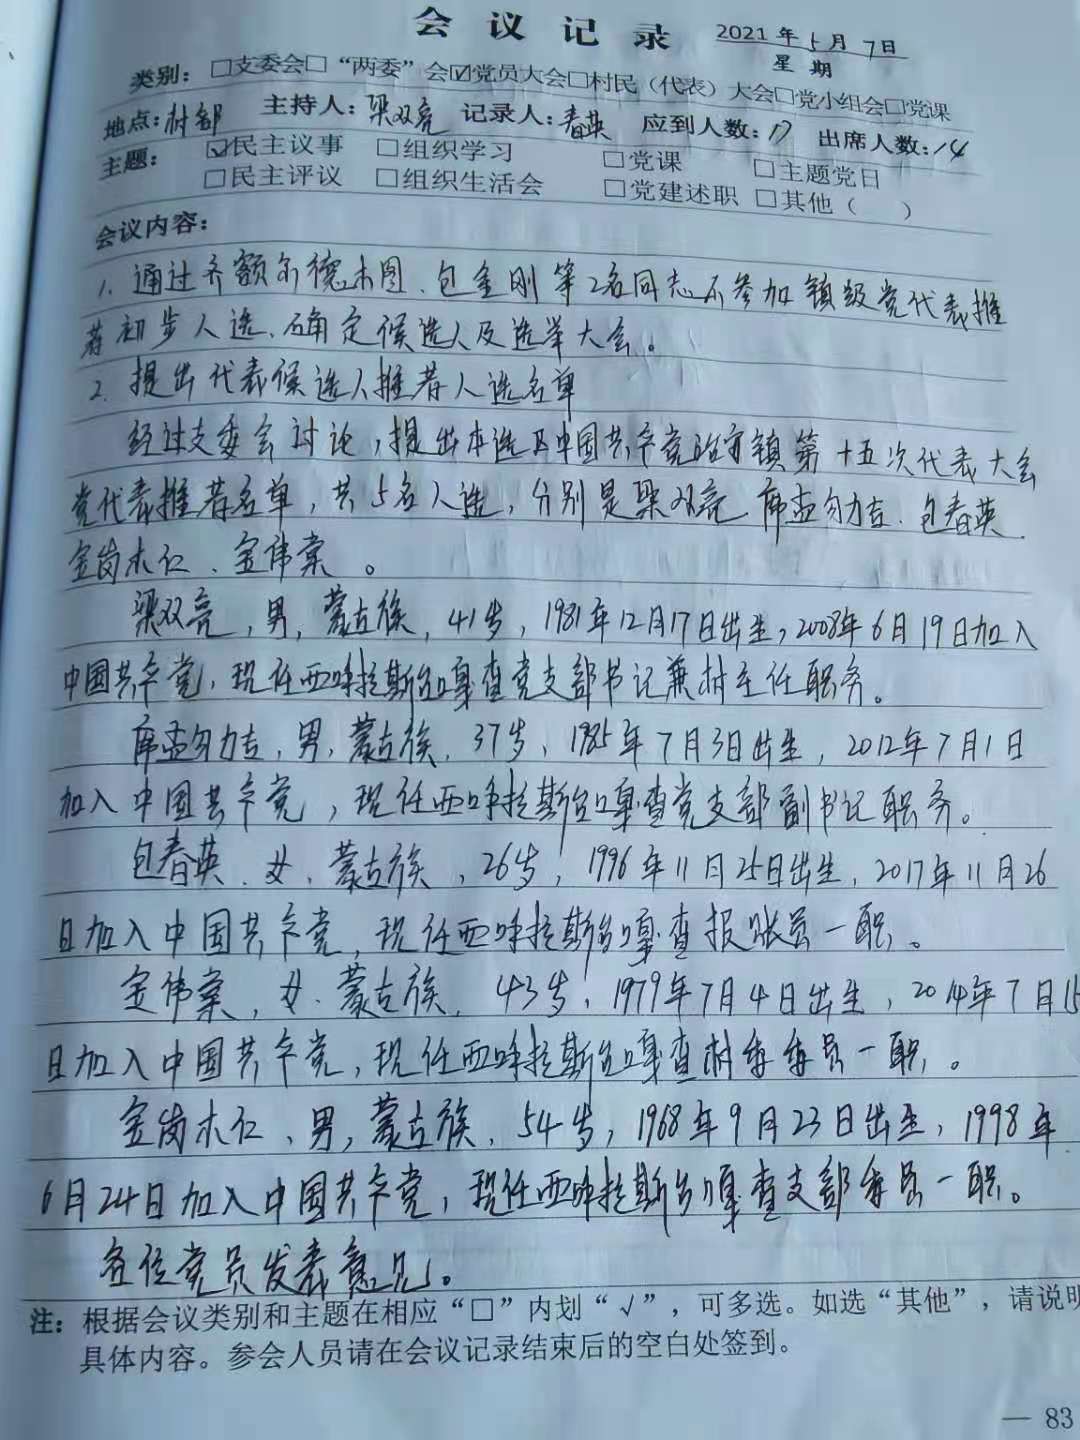 会议记录 2021年5月7日
星期
类别：□支委会□“两委”会☑党员大会□村民（代表）大会□党小组会□党课
地点：村部 主持人：梁双亮 记录人：春英 应到人数：17 出席人数：14
主题：☑民主议事 □组织学习 □党课 □主题党日
□民主评议 □组织生活会 □党建述职 □其他（ ）
会议内容：
1、通过齐额尔德木图、包金刚等2名同志不参加镇级党代表推
荐初步人选、确定候选人及选举大会。
2、提出代表候选人推荐人选名单
经过支委会讨论，提出本选区中国共产党治安镇第十五次代表大会
党代表推荐名单，共5名人选，分别是梁双亮、席孟勿力吉、包春英、
金岗木仁、金伟棠。
梁双亮，男，蒙古族，41岁，1981年12月17日出生，2008年6月19日加入
中国共产党，现任西呼拉斯台嘎查党支部书记兼村主任职务。
席孟勿力吉，男，蒙古族，37岁，1985年7月3日出生，2012年7月1日
加入中国共产党，现任西呼拉斯台嘎查党支部副书记职务。
包春英、女、蒙古族，26岁，1996年11月25日出生，2017年11月26
日加入中国共产党，现任西呼拉斯台嘎查报账员一职。
金伟棠，女、蒙古族，43岁，1979年7月4日出生，2014年7月15
日加入中国共产党，现任西呼拉斯台嘎查村委委员一职。
金岗木仁、男，蒙古族，54岁，1968年9月23日出生，1998年
6月24日加入中国共产党，现任西呼拉斯台嘎查支部委员一职。
各位党员发表意见。
注：根据会议类别和主题在相应“□”内划“√”，可多选。如选“其他”，请说明
具体内容。参会人员请在会议记录结束后的空白处签到。
— 83